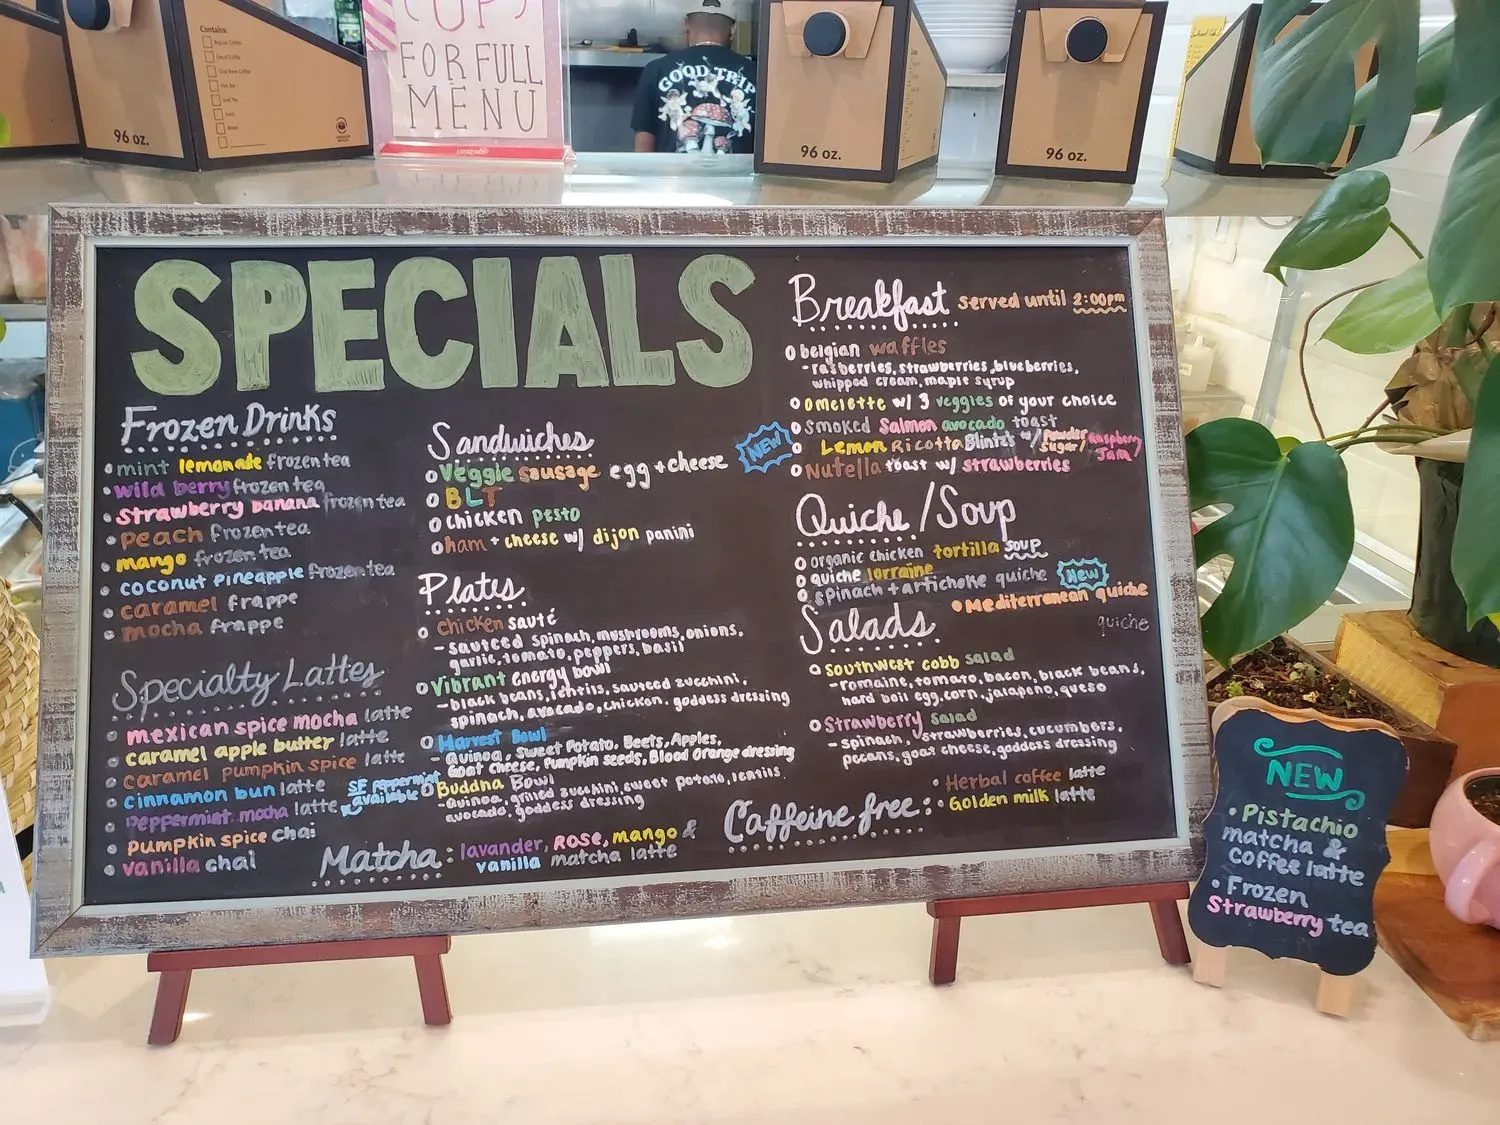 Contains:
Regular Coffee
Decaf Coffee
Iced Tea
96 oz.
FOR FULL
MENU
GOOD TRIP
96 oz.
96 oz.
SPECIALS
Frozen Drinks
mint lemonade frozen tea
wild berry frozen tea
strawberry banana frozen tea
peach frozen tea
mango frozen tea
coconut pineapple frozen tea
caramel frappe
mocha frappe
Specialty Lattes
mexican spice mocha latte
caramel apple butter latte
caramel pumpkin spice latte
cinnamon bun latte
peppermint mocha latte
SF peppermint
available
pumpkin spice chai
vanilla chai
Sandwiches
Veggie sausage egg + cheese
BLT
chicken pesto
ham + cheese w/ dijon panini
Plates
chicken sauté
- sauteed spinach, mushrooms, onions,
garlic, tomato, peppers, basil
Vibrant energy bowl
- black beans, lentils, sauteed zucchini,
spinach, avocado, chicken, goddess dressing
Harvest Bowl
- Quinoa, Sweet Potato, Beets, Apples,
Goat cheese, Pumpkin seeds, Blood Orange dressing
Buddha Bowl
- Quinoa, grilled zucchini, sweet potato, lentils,
avocado, goddess dressing
Matcha: lavander, Rose, mango &
vanilla matcha latte
Breakfast served until 2:00pm
belgian waffles
- rasberries, strawberries, blueberries,
whipped cream, maple syrup
omelette w/ 3 veggies of your choice
smoked salmon avocado toast
NEW
Lemon Ricotta Blintz's w/ Powder Sugar/ Raspberry Jam
Nutella toast w/ strawberries
Quiche/Soup
organic chicken tortilla soup
quiche lorraine
spinach + artichoke quiche
New
Mediterranean quiche
quiche
Salads
southwest cobb salad
- romaine, tomato, bacon, black beans,
hard boil egg, corn, jalapeno, queso
Strawberry Salad
- spinach, strawberries, cucumbers,
pecans, goat cheese, goddess dressing
Caffeine free:
Herbal coffee latte
Golden milk latte
NEW
Pistachio
matcha &
coffee latte
Frozen
Strawberry tea